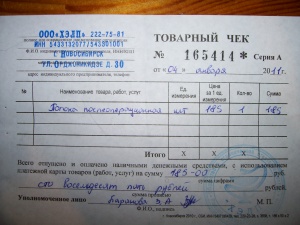 ООО «ХЭЛП» 222-75-81
ИНН 5433132077/543301001
г. НОВОСИБИРСК
УЛ. ОРДЖОНИКИДЗЕ Д. 30
адрес, индивидуальный предприниматель, телефон
ТОВАРНЫЙ ЧЕК
№ 165414 * Серия А
от «04» января 2011г.
№ Наименование товара, работ, услуг Ед. измерения Цена за 1 ед. измерения Кол-во Сумма
послеоперационная шт 185 1 185
Итого X X X
Всего отпущено и оплачено наличными денежными средствами, с использованием
платежной карты товаров (работ, услуг) на сумму 185-00
сумма цифрами
сто восемьдесят пять рублей
сумма прописью
Уполномоченное лицо Баранова Э.А.
М.П.
Ф.И.О., подпись